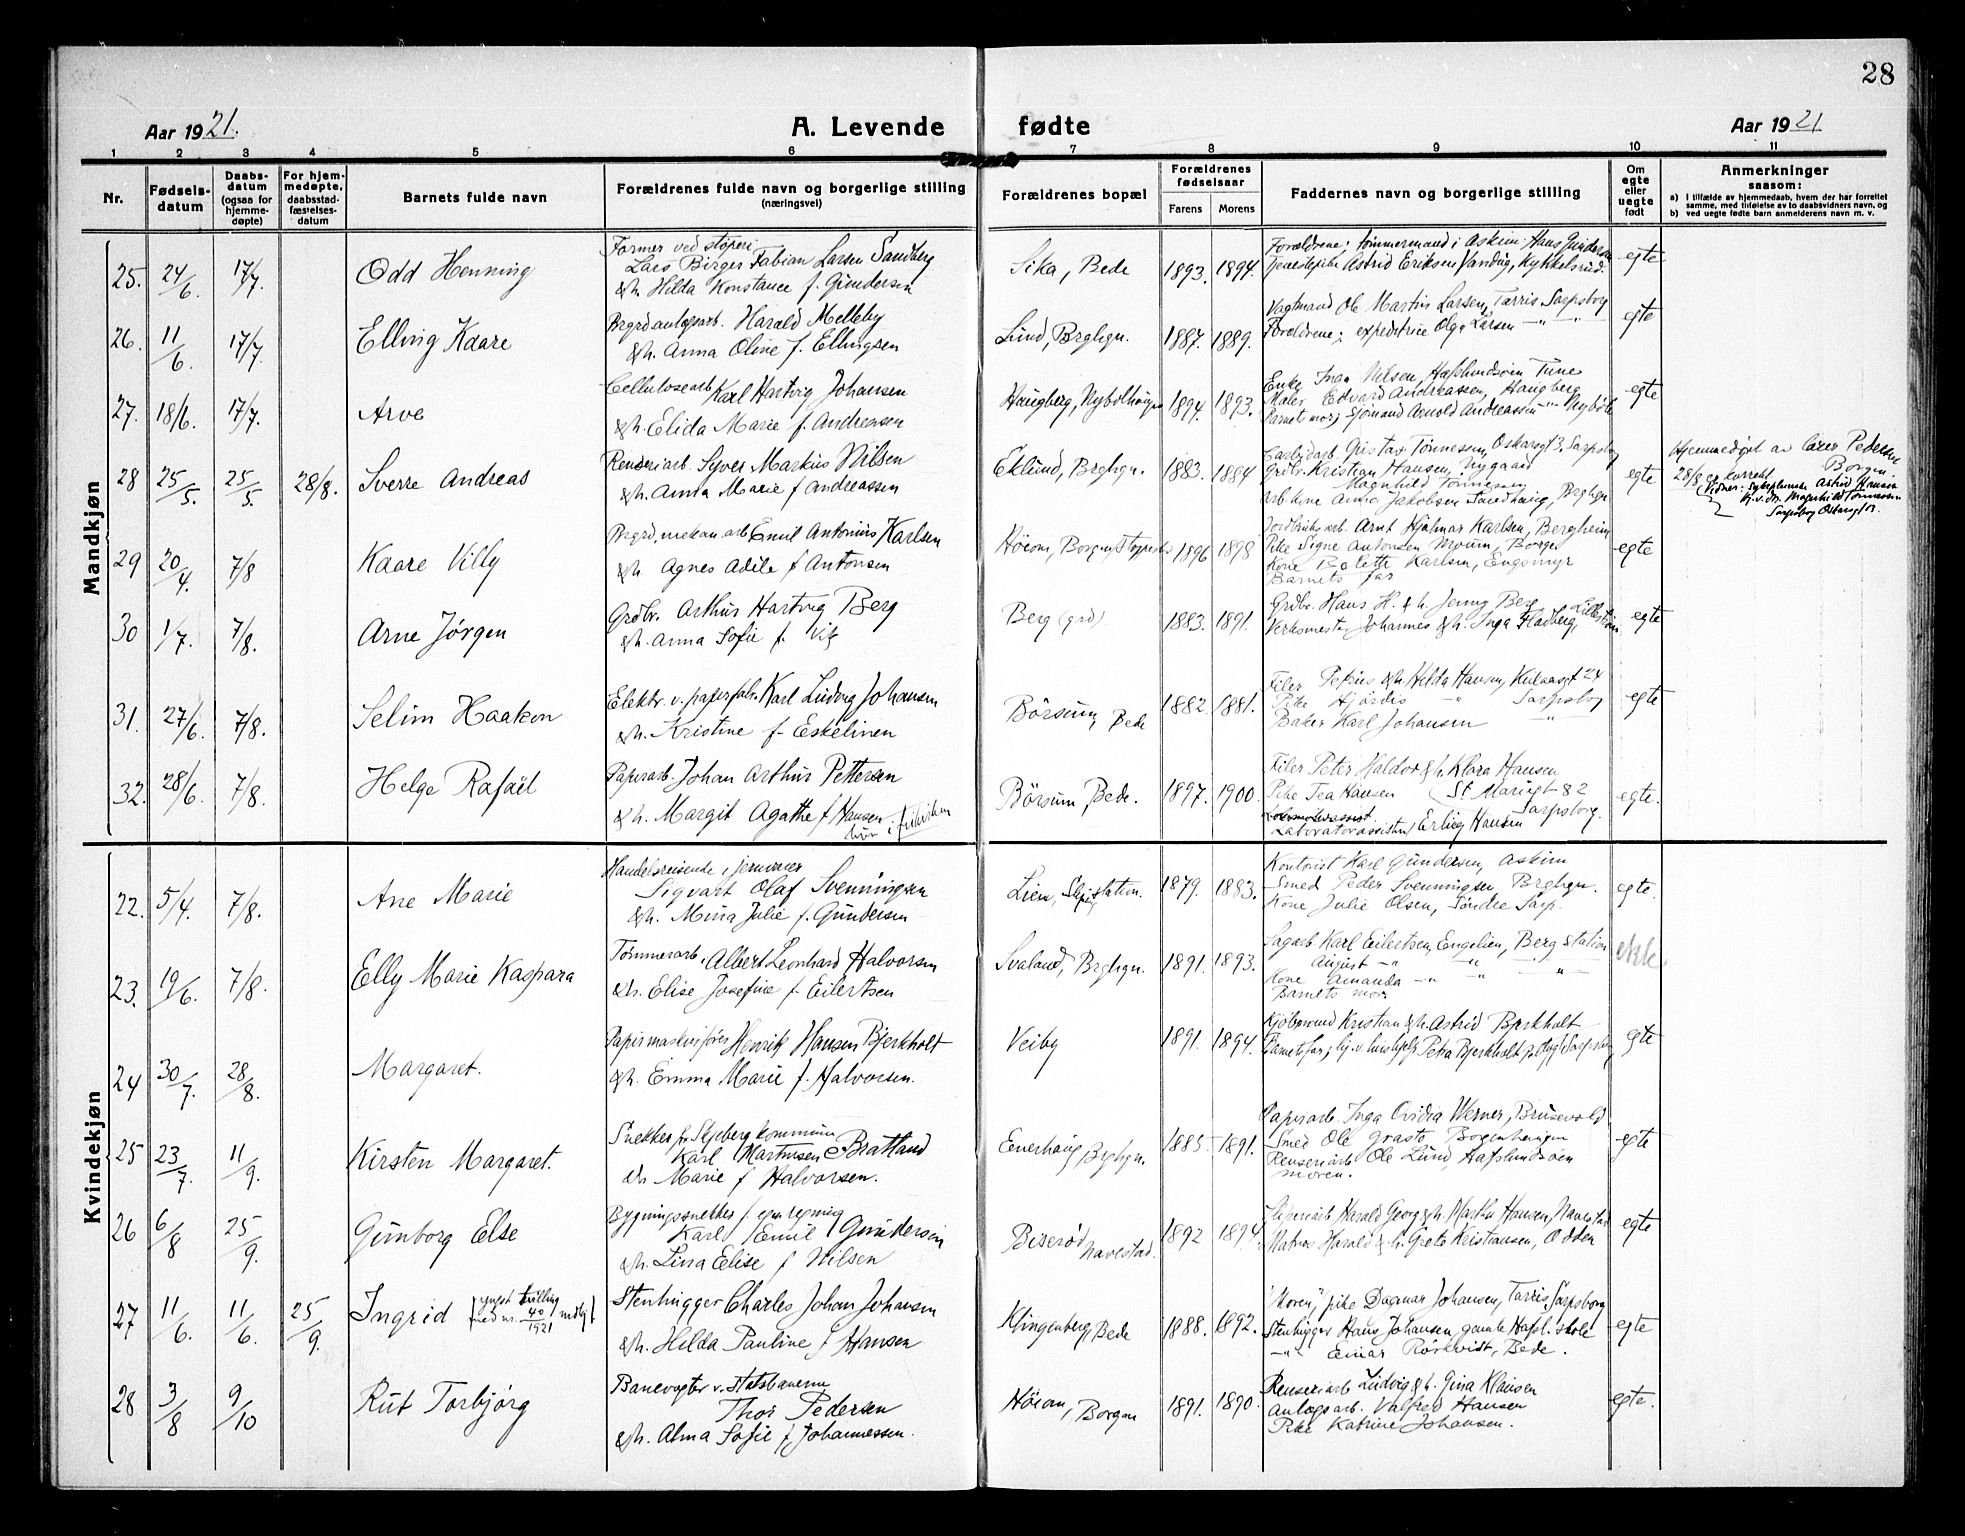 28
Aar 1921.
A. Levende fødte
Aar 1921
1 2 3 4 5 6 7 8 9 10 11
Nr.
Fødsels-
datum
Daabs-
datum
(ogsaa for
hjemme-
døpte)
For hjem-
medøpte,
daabsstad-
fæstelses-
datum
Barnets fulde navn
Forældrenes fulde navn og borgerlige stilling
(næringsvei)
Forældrenes bopæl
Forældrenes
fødselsaar
Farens Morens
Faddernes navn og borgerlige stilling
Om
egte
eller
uegte
født
Anmerkninger
saasom:
a) I tilfælde av hjemmedaab, hvem der har forrettet
samme, med tilføielse av to daabsvidners navn, og
b) ved uegte fødte barn anmelderens navn m. v.
Mandkjøn
25. 24/6. 17/7. Odd Henning
Former ved støperi
Lars Birger Fabian Larsen Sandberg
& h. Hilda Konstance f. Gundersen
Sika, Bede 1893. 1894.
Forældrene; tømmermand i Askim Hans Gundersen
Astrid Eriksen Vandug, Kykkelsrud.
egte
26. 11/6. 17/7. Elling Kaare
Harald Melleby
& h. Anna Oline f. Ellingsen
Lund, Brghgn. 1887. 1889.
Vagtmand Ole Martin Larsen, Tarris Sarpsborg
Forældrene; expeditrice Olga Larsen -"- -"-
egte
27. 18/6. 17/7. Arve
Cellulosearb. Karl Hartvig Johansen
& h. Elida Marie f. Andreassen
Haugberg, 1894. 1893.
Enke Inga Nilsen, Hafslundsøen Tune
Maler Edvard Andreassen, Haugberg
Barnets mor; Sjømand Arnold Andreassen -"-
egte
28 25/5. 25/5 28/8. Sverre Andreas
Renseriarb. Syver Markus Nilsen
& h. Anna Marie f Andreassen
Eklund, Brghgn. 1883. 1884
Gustav Tønnesen, Oskarsgt 3. Sarpsborg
Grdbr. Kristian Hansen, Nygaard
Magnhild Tønnesen
Anna Jakobsen Brghgn
egte
Hjemmedøpt av lærer Pedersen
Borgen
28/8 as korrekt
Vidner: Astrid Hansen
Magnhild Tønnessen
Sarpsborg Oskarsgt 3.
29 20/4. 7/8 Kaare Villy
Brgrd, mekan. arb Emil Antonius Karlsen
& h. Agnes Adile f Antonsen
Høiom, Borgen 1896 1898
Jordbruksarb. Arnt Hjalmar Karlsen, Bergheim
Pike Signe Antonsen Moum, Borge
Kone Bolette Karlsen, Engsmyr
Barnets far
egte
30 1/7. 7/8. Arne Jørgen
Grdbr. Arthur Hartvig Berg
& h. Anna Sofie f. Vik
Berg (grd) 1883. 1891.
Grdbr. Hans H. & h. Jenny Berg
Verksmester Johannes & h. Inga Fladberg, Lillestrøm
egte
31. 27/6. 7/8. Selim Haakon
Elektr. v. papirfabr. Karl Ludvig Johansen
& h. Kristine f. Eskelinen
Børsum, Bede 1882. 1881.
Filer Petrus & h. Hilda Hansen, Kulaasgt 24
Pike Hjørdis " Sarpsborg
Baker Karl Johansen "
egte
32. 28/6. 7/8. Helge Rafaël
Papirarb. Johan Arthur Pettersen
& h. Margit Agathe f Hansen.
hun i frikirken
Børsum, Bede. 1897. 1900.
Filer Peter Haldor & h. Klara Hansen
Pike Tea Hansen St. Mariegt 82
Sarpsborg.
Laboratorassistent Erling Hansen
egte.
Kvindekjøn
22. 5/4. 7/8. Ane Marie
Handelsreisende i jernvarer
Sigvart Olaf Svenningsen
& h. Mina Julie f. Gundersen
Lien, station. 1879. 1883.
Kontorist Karl Gundersen, Askim
Smed Peder Svenningsen, Brghgn.
Kone Julie Olsen, Søndre Sarp.
egte.
23. 19/6. 7/8. Elly Marie Kaspara
Tømmerarb. Albert Leonhard Halvorsen
& h. Elise Josefine f. Eilertsen
Svaland, Brghgn. 1891. 1893.
Sagarb Karl Eilertsen, Engelien, Berg station
August -"- " -"-
Kone Amanda -"- " -"-
Barnets mor
24 30/7. 28/8. Margaret.
Papirmaskinfører Henrik Hansen Bjerkholt
& h. Emma Marie f. Halvorsen.
Veiby 1891. 1894.
Kjøbmand Kristian & h. Astrid Bjerkholt
Barnets far; Petra Bjerkholt Sarpsborg
egte
25 23/7. 11/9. Kirsten Margaret.
Snekker f. Skjeberg kommune
Karl Martinsen Bratland
& h. Marie f Halvorsen.
Enerhaug Brghgn. 1885. 1891.
Papirarb. Inga Ovidia Werner, Brusevold
Smed Ole Græsto Borgenhaugen
Renseriarb Ole Lund, Hafslundsøen
moren.
egte
26 6/8 25/9. Gunborg Else
Bygningssnekker f. egen regning
Karl Emil Gundersen
& h. Lina Elise f Nilsen
Biserød Navestad. 1892 1894.
Papirarb Harald Georg & h. Martha Hansen, Navestad
Matros Harald & h. Grete Kristiansen, Odden
egte
27 11/6. 11/6. 25/9. Ingrid
(yngst tvilling
med nr. 40/1921 mdkj)
Stenhugger Charles Johan Johansen
& h. Hilda Pauline f Hansen
Klingenberg, Bede 1888. 1892.
"Moren", pike Dagmar Johansen, Tarris, Sarpsborg
Stenhugger Hans Johansen, gamle Hafsl. skole
-"- Einar Rørkvidt, Bede.
egte
28 3/8 9/10 Rut Torbjørg
Banevogter v. Statsbanerne
Thor Pedersen
& h. Alma Sofie f Johannessen.
Høiom, Borgen 1891. 1890.
Renseriarb Ludvig & h. Gina Klausen
anlægsarb. Valfred Hansen
Pike Katrine Johansen.
egte.